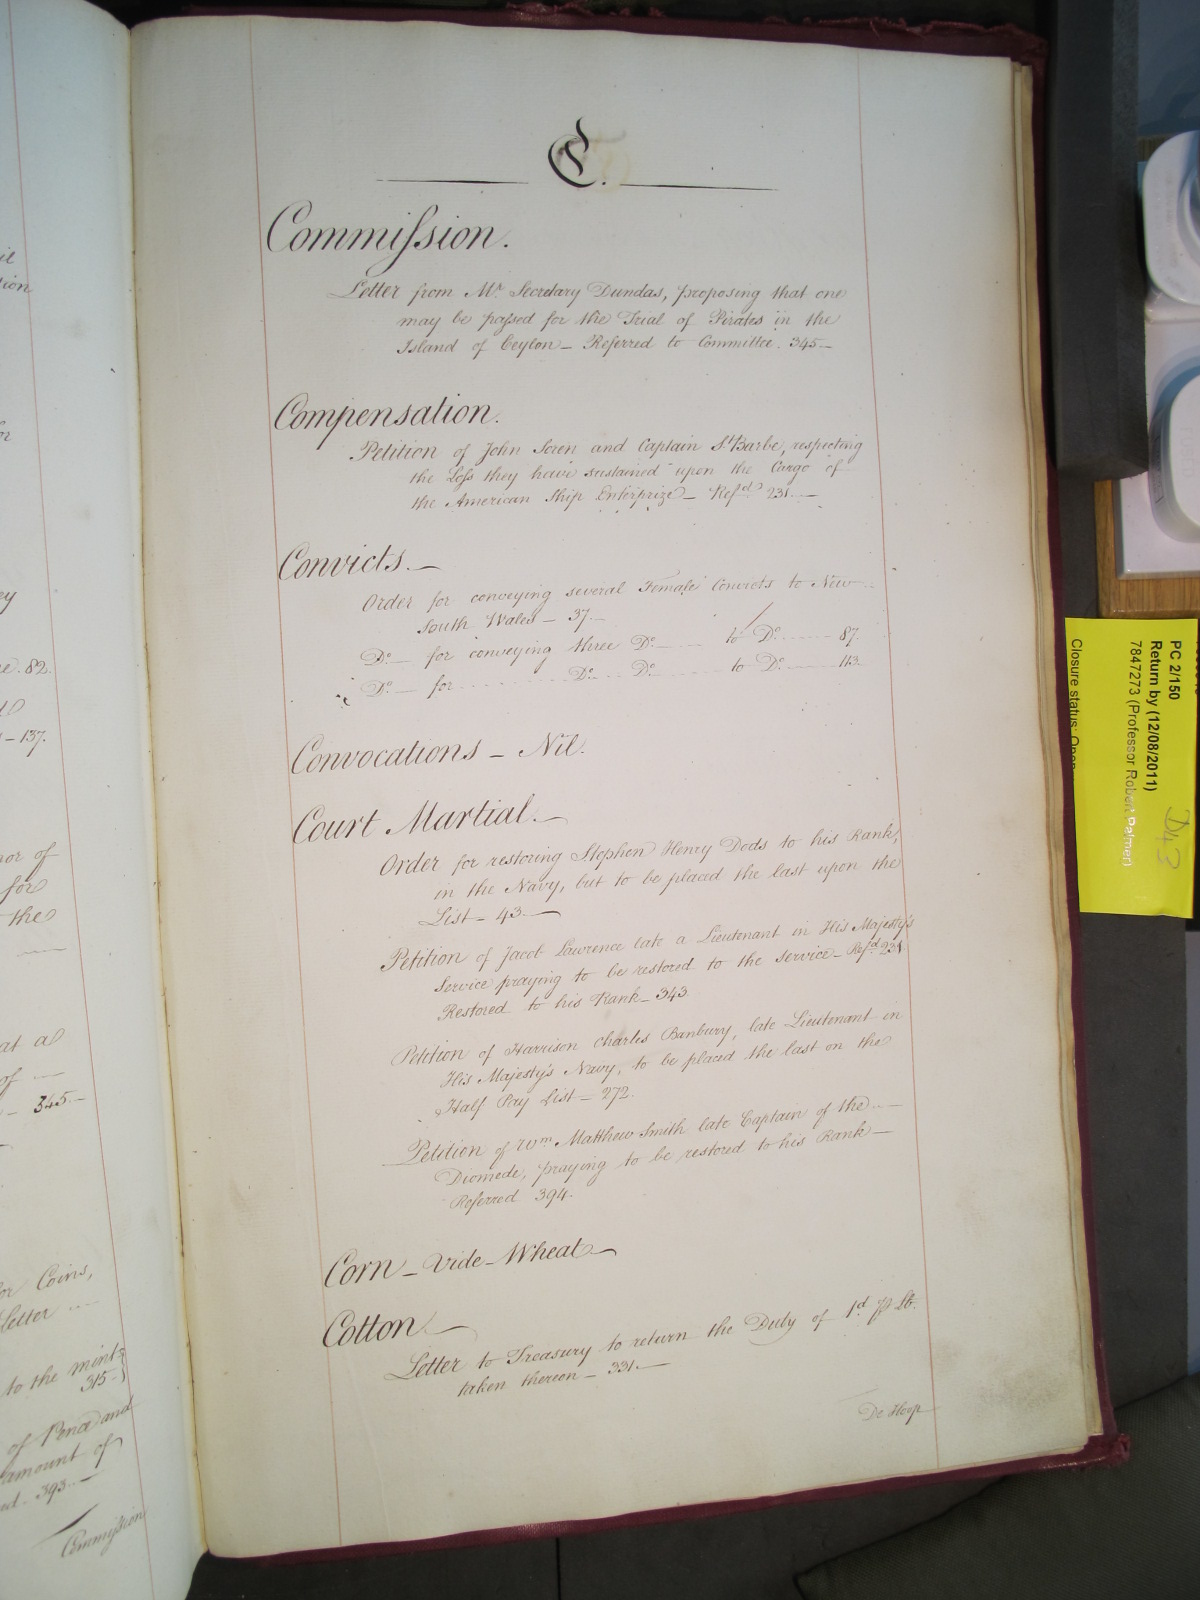 C.
Commission.
Letter from Mr. Secretary Dundas, proposing that one
may be passed for the Trial of Pirates in the
Island of Ceylon – Referred to Committee. 345 –
Compensation.
Petition of John Soren and Captain St. Barbe, respecting
the Loss they have sustained upon the Cargo of
the American Ship Enterprize – Refd. 231. –
Convicts. –
Order for conveying several Female Convicts to New
South Wales – 37. –
Do. – for conveying three Do. to Do. 87.
Do. – for Do. Do. to Do. 113.
Convocations – Nil.
Court Martial. –
Order for restoring Stephen Henry Dods to his Rank,
in the Navy, but to be placed the last upon the
List – 43. –
Petition of Jacob Lawrence late a Lieutenant in His Majesty's
Service praying to be restored to the Service – Refd. 231
Restored to his Rank – 343
Petition of Harrison Charles Banbury, late Lieutenant in
His Majesty's Navy, to be placed the last on the
Half Pay List – 272.
Petition of Wm. Matthew Smith late Captain of the
Diomede, praying to be restored to his Rank –
Referred 394.
Corn – vide – Wheat –
Cotton –
Letter to Treasury to return the Duty of 1d. P lb.
taken thereon – 331. –
De Hoop
ey
82.
– 137.
or of
for
the
at a
of –
– 345 –
or Coins,
Letter
to the mint
315 –
of Pence and
amount of
393. –
Commission
PC 2/150
Return by (12/08/2011)
7847273 (Professor Robert Palmer)
Closure status: Open
D43